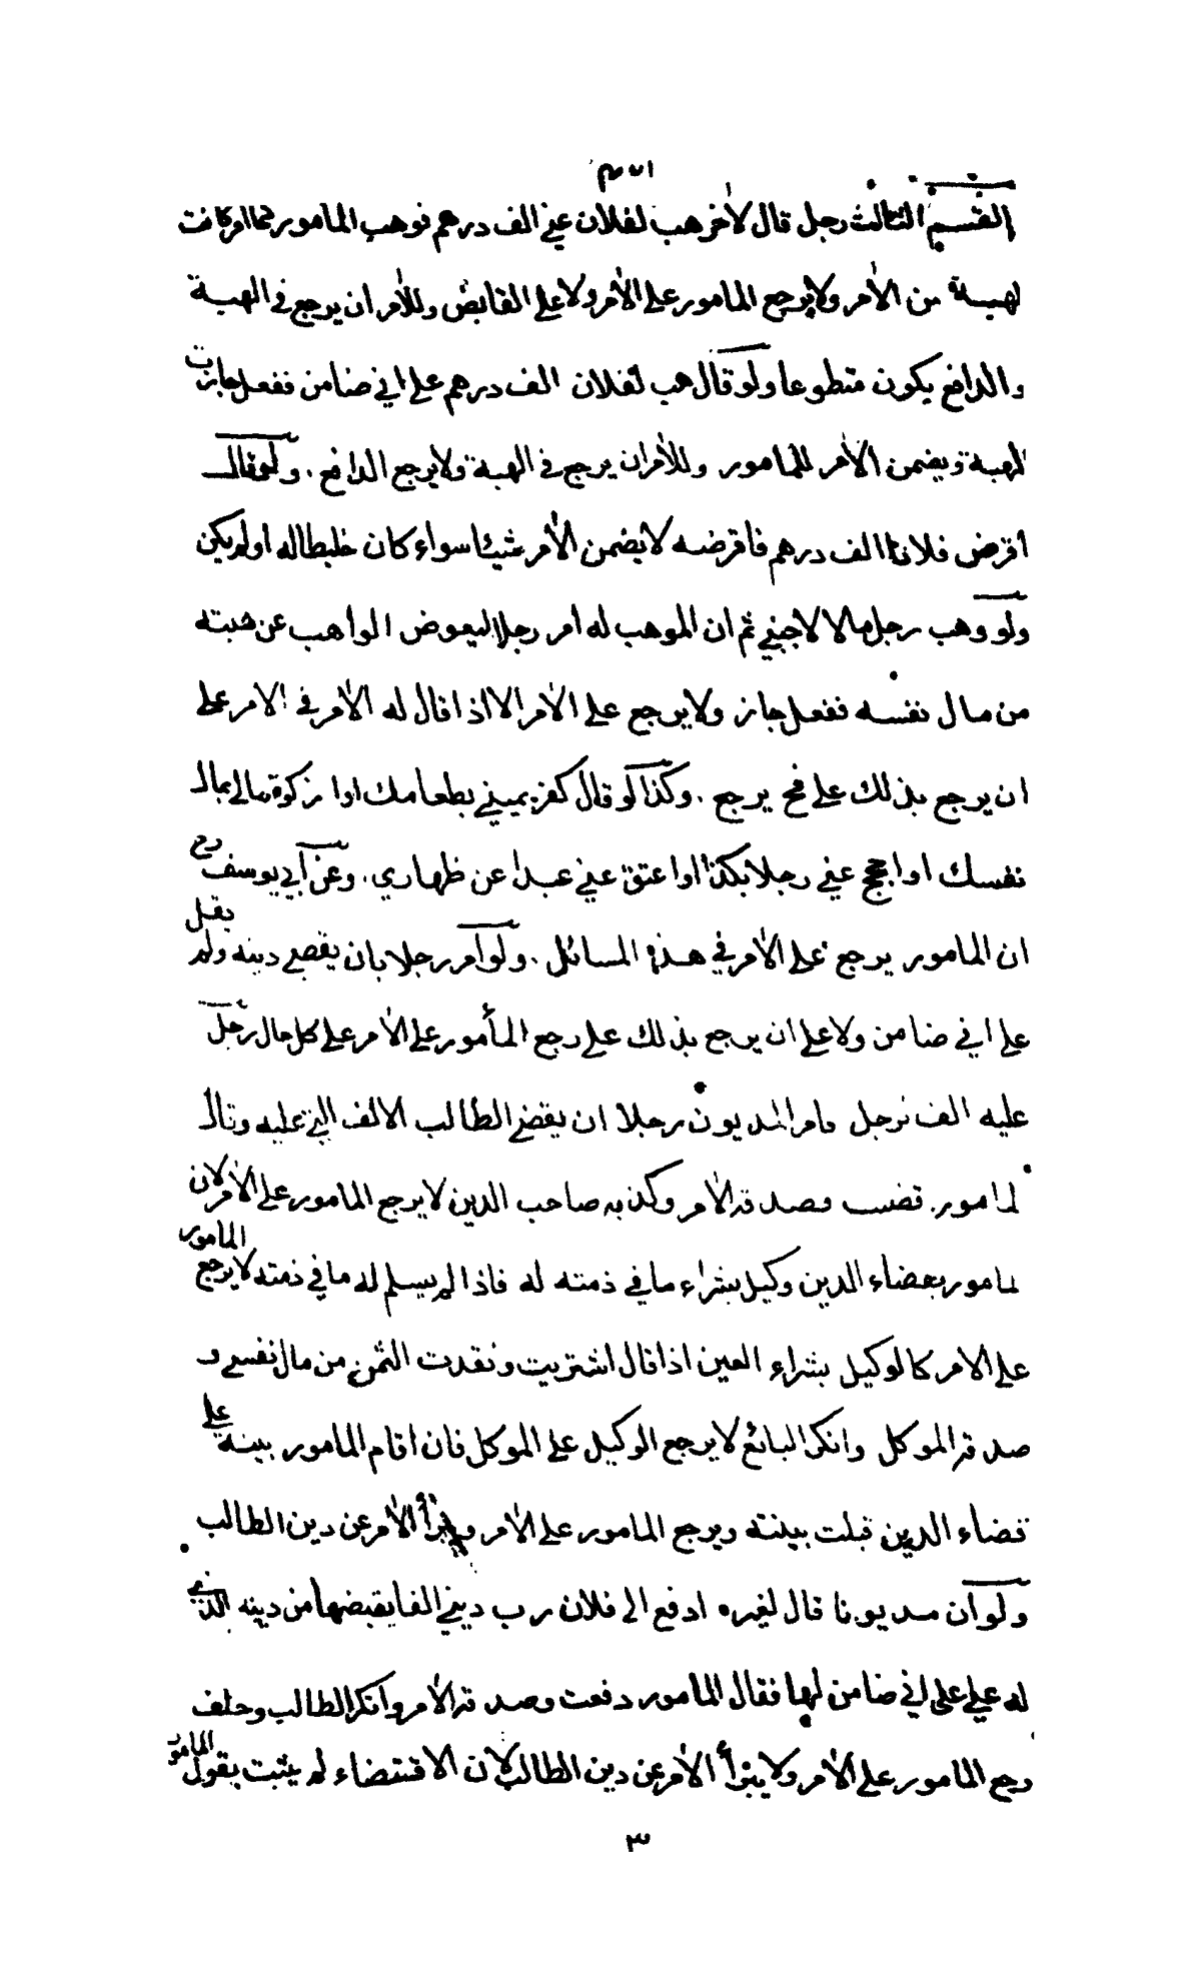 القسم الثالث رجل قال لآخر هب لفلان عني الف درهم فوهب المامور كما امر كانت
لهبة من الآمر ولا يرجع المامور على الآمر ولا على القابض وللآمر ان يرجع في الهبة
والدافع يكون متطوعا ولو قال هب لفلان الف درهم على اني ضامن ففعل جازت
لهبة ويضمن الآمر للمامور وللآمر ان يرجع في الهبة ولا يرجع الدافع . ولو قال
اقرض فلانا الف درهم فاقرضه لا يضمن الآمر شيئا سواء كان خليطا له او لم يكن
ولو وهب رجل مالا لاجنبي ثم ان الموهب له امر رجلا ليعوض الواهب عن هبته
من مال نفسه ففعل جاز ولا يرجع على الآمر الا اذا قال له الآمر في الامر على
ان يرجع بذلك علي فح يرجع . وكذا لو قال كفر يميني بطعامك او ا زكوة مالي بمال
نفسك او احجج عني رجلا بكذا او اعتق عني عبدا عن ظهاري . وعن ابي يوسف رح
ان المامور يرجع على الآمر في هذه المسائل . ولو امر رجلا بان يقضي دينه ولم يقل
على اني ضامن ولا على ان يرجع بذلك علي رجع المأمور على الآمر على كل حال رجل
عليه الف لرجل فامر المديون رجلا ان يقضي الطالب الالف التي عليه وقال
لمامور قضيت وصدقه الآمر وكذبه صاحب الدين لا يرجع المامور على الآمر لان
لمامور بقضاء الدين وكيل بشراء ما في ذمته له فاذا لم يسلم له ما في ذمته لا يرجع المامور
على الامر كالوكيل بشراء العين اذا قال اشتريت ونقدت الثمن من مال نفسي و
صدقه الموكل وانكر البائع لا يرجع الوكيل على الموكل فان اقام المامور بينة على
قضاء الدين قبلت بينته ويرجع المامور على الآمر ويبرأ الآمر عن دين الطالب
ولو ان مديونا قال لغيره ادفع الى فلان رب ديني الفا يقبضها من دينه الذي
له علي على اني ضامن لها فقال المامور دفعت وصدقه الآمر وانكر الطالب وحلف
رجع المامور على الآمر ولا يبرأ الآمر عن دين الطالب لان الاقتضاء لم يثبت بقول المامور
٣